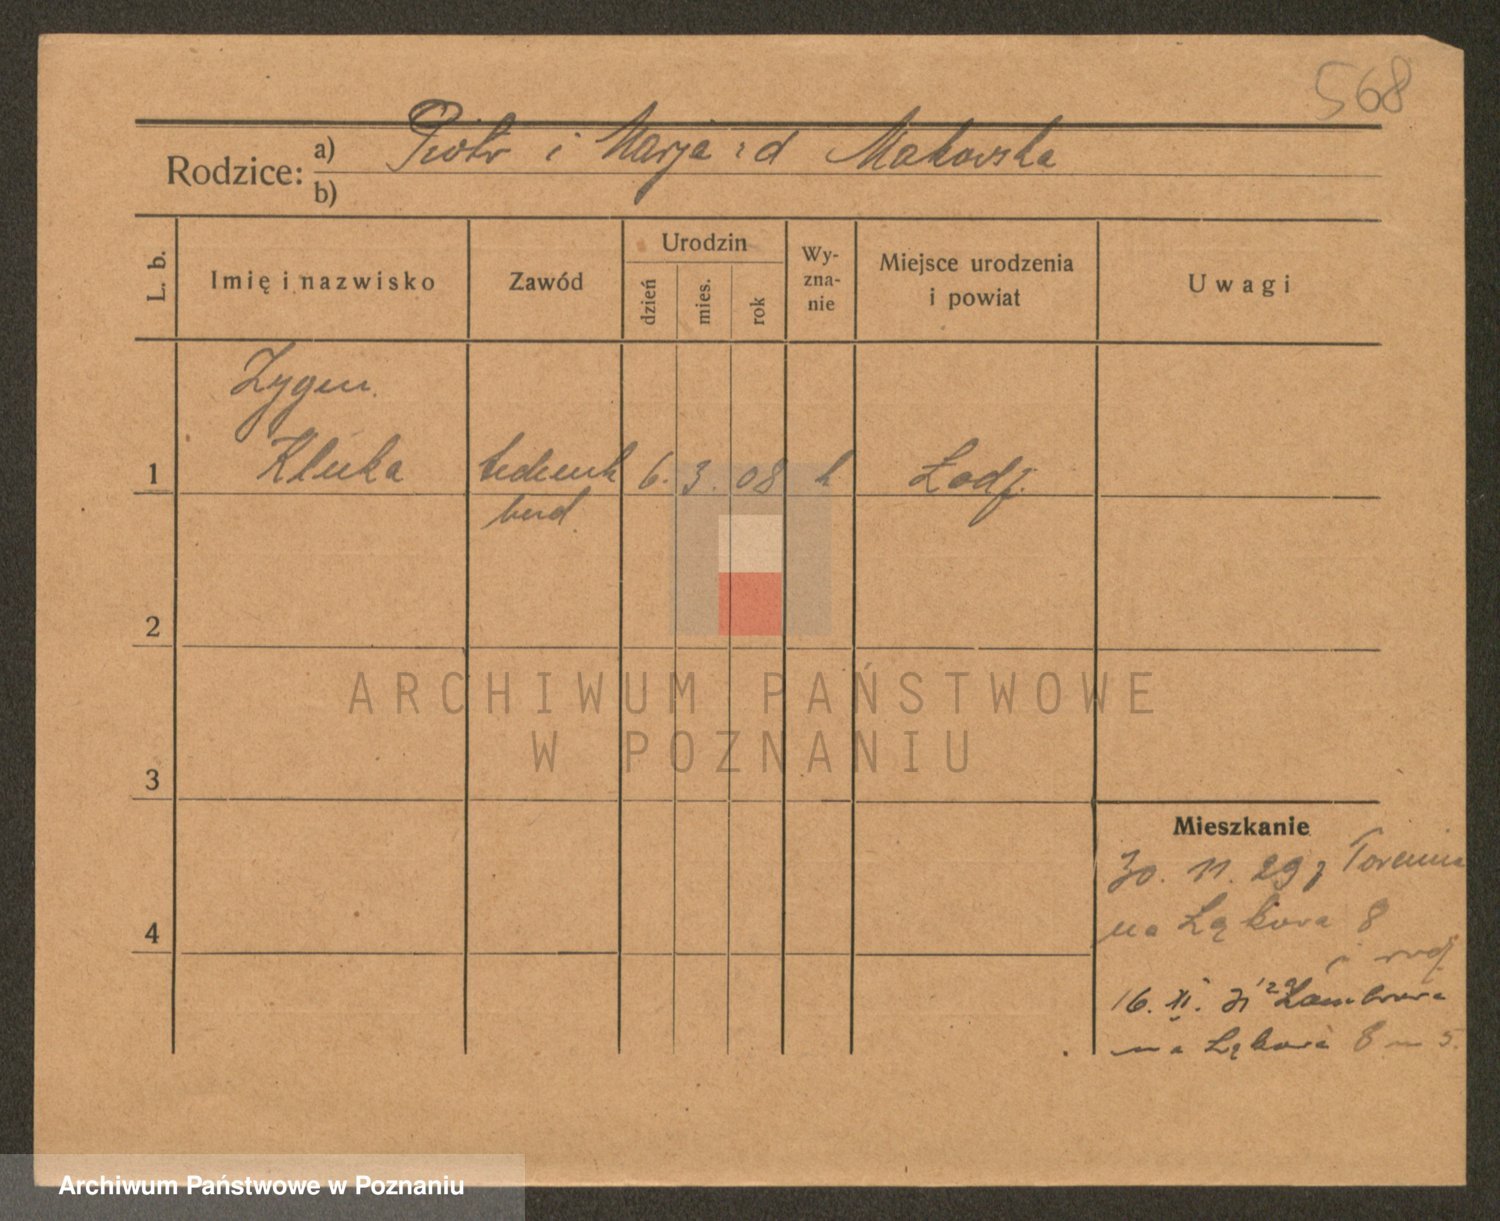 568
Rodzice: a) Piotr i Marja z d Makowska
b)
L. b. Imię i nazwisko Zawód Urodzin dzień mies. rok Wy-zna-nie Miejsce urodzenia i powiat Uwagi
Zygm.
1 Kluka technik 6. 3. 08 k Łodź
bud.
2
ARCHIWUM PAŃSTWOWE
W POZNANIU
3
Mieszkanie
30. 11. 29 z Torunia
na Łąkowa 8
4
i rodz
16. XI. 31 z Zambrowa
na Łąkowa 8 m 5.
Archiwum Państwowe w Poznaniu